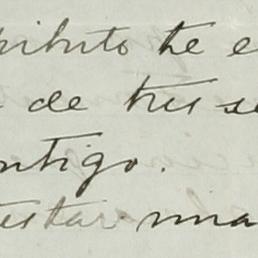 pirito te e
de tres se
ntigo.
testar una